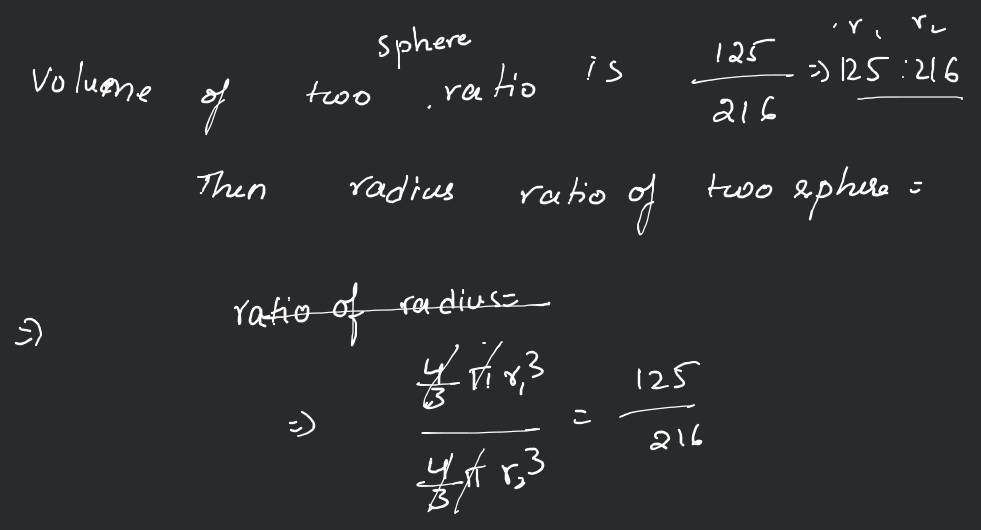 Volume of two sphere ratio is 125/216 => 125 : 216
r₁ r₂
Then radius ratio of two sphere =
=> ratio of radius=
=> 4/3 π r₁³ / 4/3 π r₂³ = 125/216